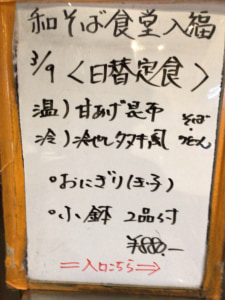 和そば食堂入福
3/9〈日替定食〉
温）甘あげ昆布 そば・
冷）冷やしタヌキ風 うどん
。おにぎり(玉子)
。小鉢 2品付
¥880.—
⇒入口こちら⇒